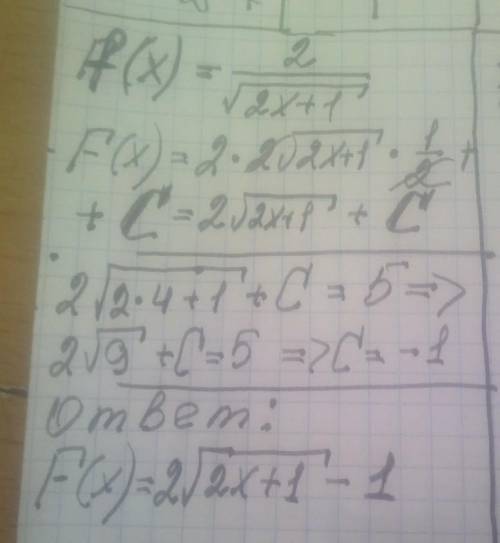 f(x) = 2/√(2x+1)
F(x) = 2·2√(2x+1) · 1/2 +
+ C = 2√(2x+1) + C
2√(2·4+1) + C = 5 =>
2√9 + C = 5 => C = -1
Ответ:
F(x) = 2√(2x+1) - 1